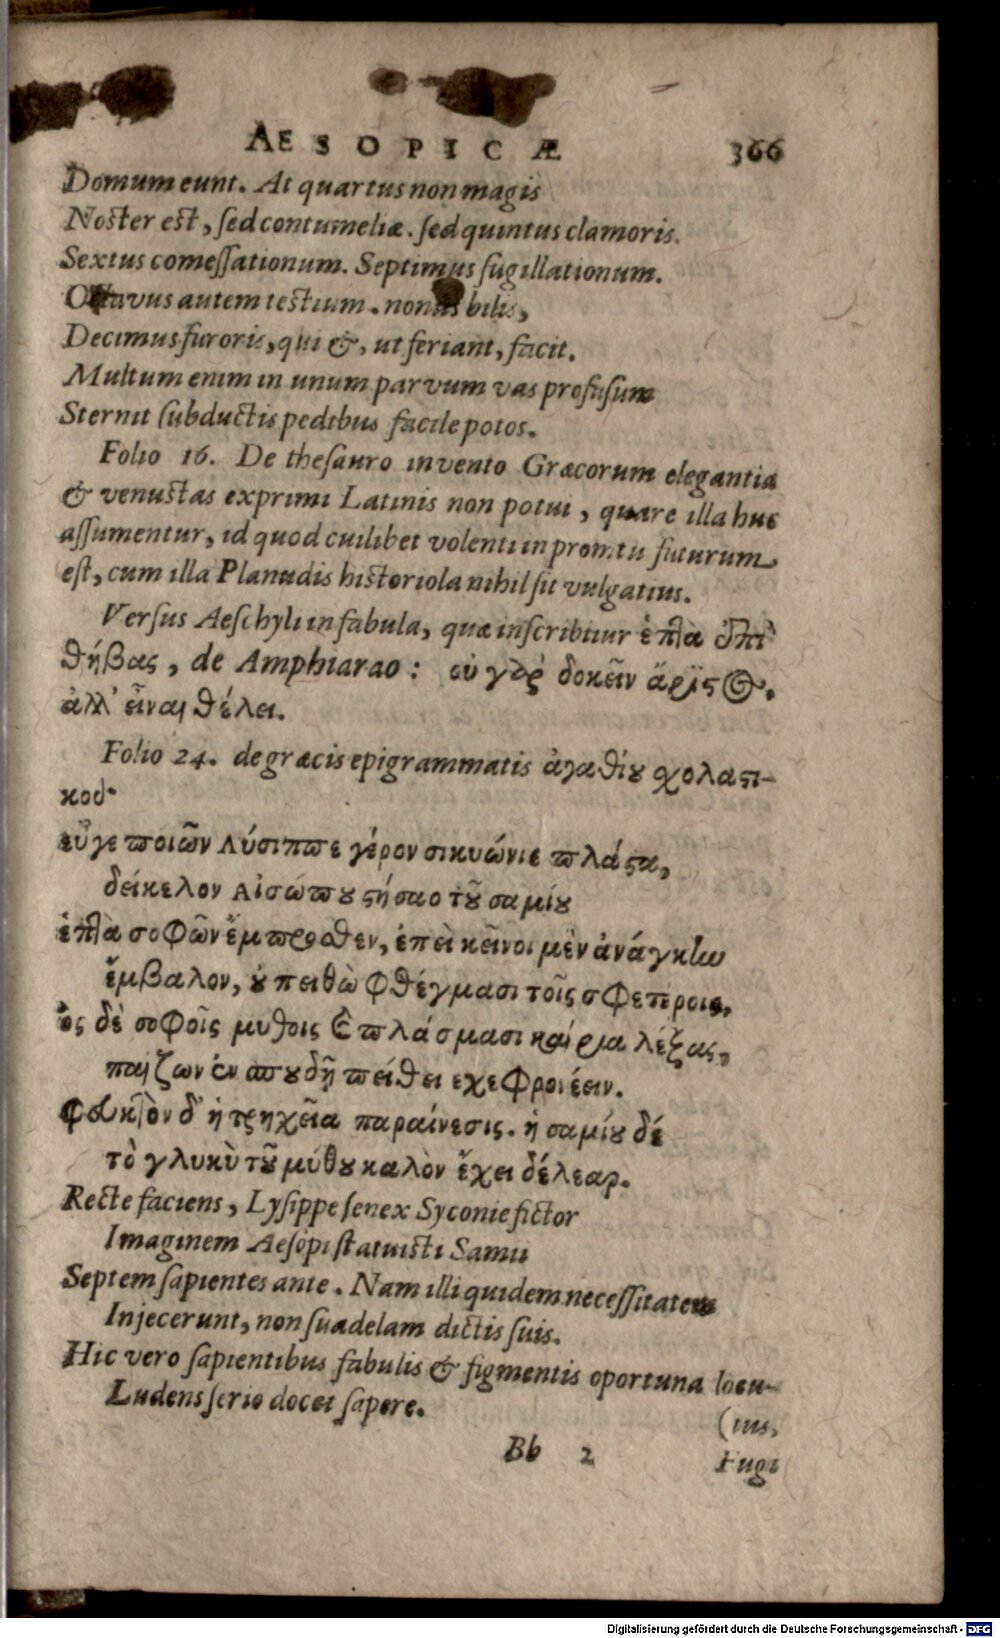 AESOPICÆ 366
Domum eunt. At quartus non magis
Noster est, ſed contumeliæ. ſed quintus clamoris.
Sextus comeſſationum. Septimus ſugillationum.
Octavus autem testium. nonus bilis,
Decimus furoris, qui &, ut feriant, facit.
Multum enim in unum parvum vas profuſum
Sternit ſubductis pedibus facile potos.
Folio 16. De theſauro invento Græcorum elegantia
& venustas exprimi Latinis non potui, quare illa huc
aſſumentur, id quod cuilibet volenti in promtu futurum
eſt, cum illa Planudis historiola nihil ſit vulgatius.
Verſus Aeſchyli in fabula, quæ inſcribitur ἑπτὰ ἐπὶ
θήβας, de Amphiarao: οὐ γὰρ δοκεῖν ἄριϊστος,
ἀλλ' εἶναι θέλει.
Folio 24. de græcis epigrammatis ἀγαθίου σχολαστι-
κοῦ·
εὖγε ποιῶν Λύσιππε γέρον σικυώνιε πλάστα,
δείκελον Αἰσώπου στήσαο τοῦ σαμίου
ἑπτὰ σοφῶν ἔμπροσθεν, ἐπεὶ κεῖνοι μὲν ἀνάγκην
ἔμβαλον, οὐ πειθὼ φθέγμασι τοῖς σφετέροις,
ὃς δὲ σοφοῖς μυθοις καὶ πλάσμασι καίρια λέξας,
παίζων ἐν σπουδῇ πείθει εχεφρονέειν.
φευκτὸν δ' ἡ τρηχεῖα παραίνεσις. ἡ σαμίου δέ
τὸ γλυκὺ τοῦ μύθου καλὸν ἔχει δέλεαρ.
Recte faciens, Lyſippe ſenex Syconie fictor
Imaginem Aeſopi ſtatuisti Samii
Septem ſapientes ante. Nam illi quidem neceſſitatem
Injecerunt, non ſuadelam dictis ſuis.
Hic vero ſapientibus fabulis & figmentis oportuna locu-
Ludens ſerio docet ſapere. (tus,
Bb 2 Fugi
Digitalisierung gefördert durch die Deutsche Forschungsgemeinschaft - DFG